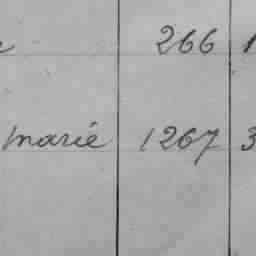 266
marié 1267 3